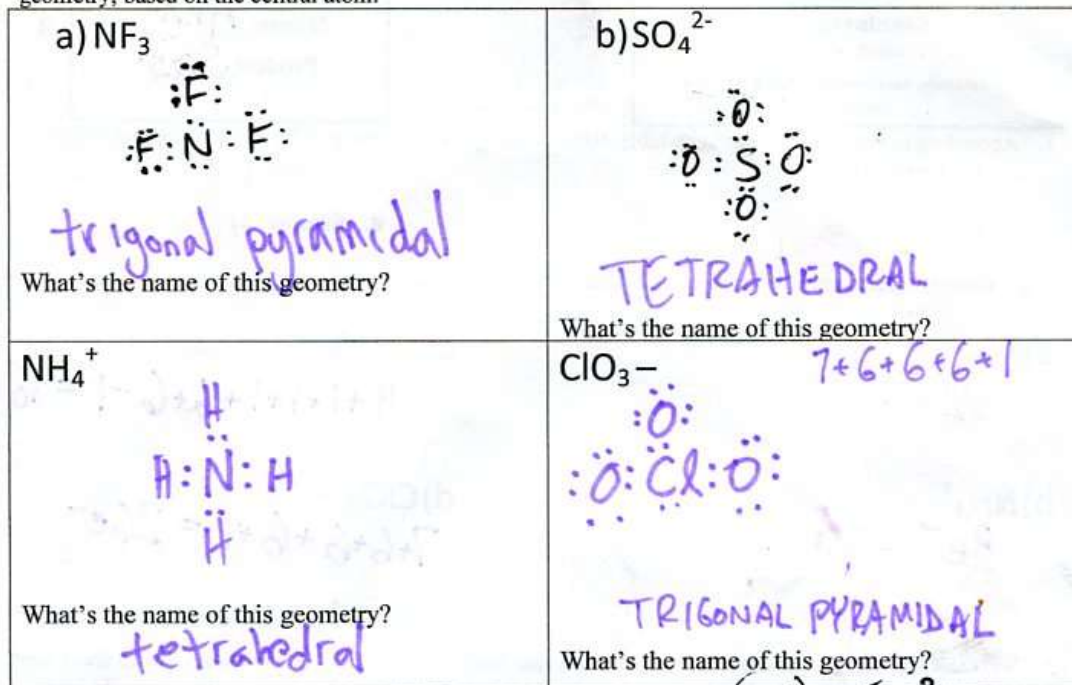 geometry, based on the central atom.
a) NF3
:F:
:F:N:F:
trigonal pyramidal
What's the name of this geometry?
b) SO4 2-
:O:
:O:S:O:
:O:
TETRAHEDRAL
What's the name of this geometry?
NH4+
H
H:N:H
H
What's the name of this geometry?
tetrahedral
ClO3 –
7+6+6+6+1
:O:
:O:Cl:O:
TRIGONAL PYRAMIDAL
What's the name of this geometry?